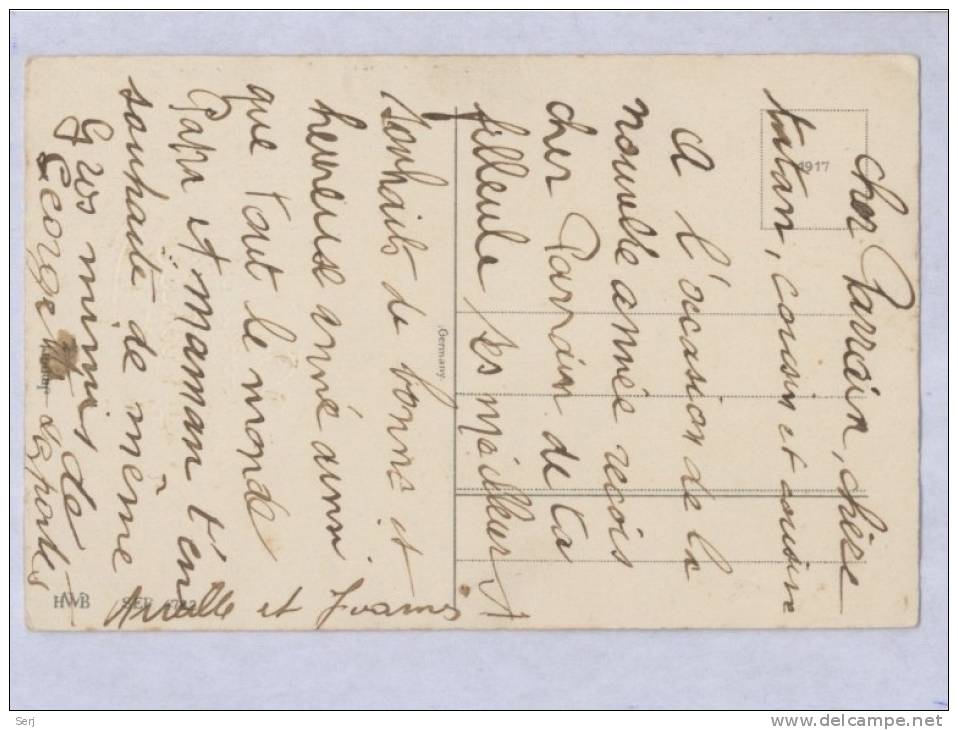 Cher Parrain, chère
tatan, cousin et cousine
A l'occasion de la
nouvelle année reçois
cher Parrain de ta
filleule ses meilleurs
souhaits de bonne et
heureuse anné ainsi
que tout le monde
Papa et Maman t'en
souhaite de même
Gros mimis de
George
et
1917
Germany.
HWB SER
Serj
www.delcampe.net